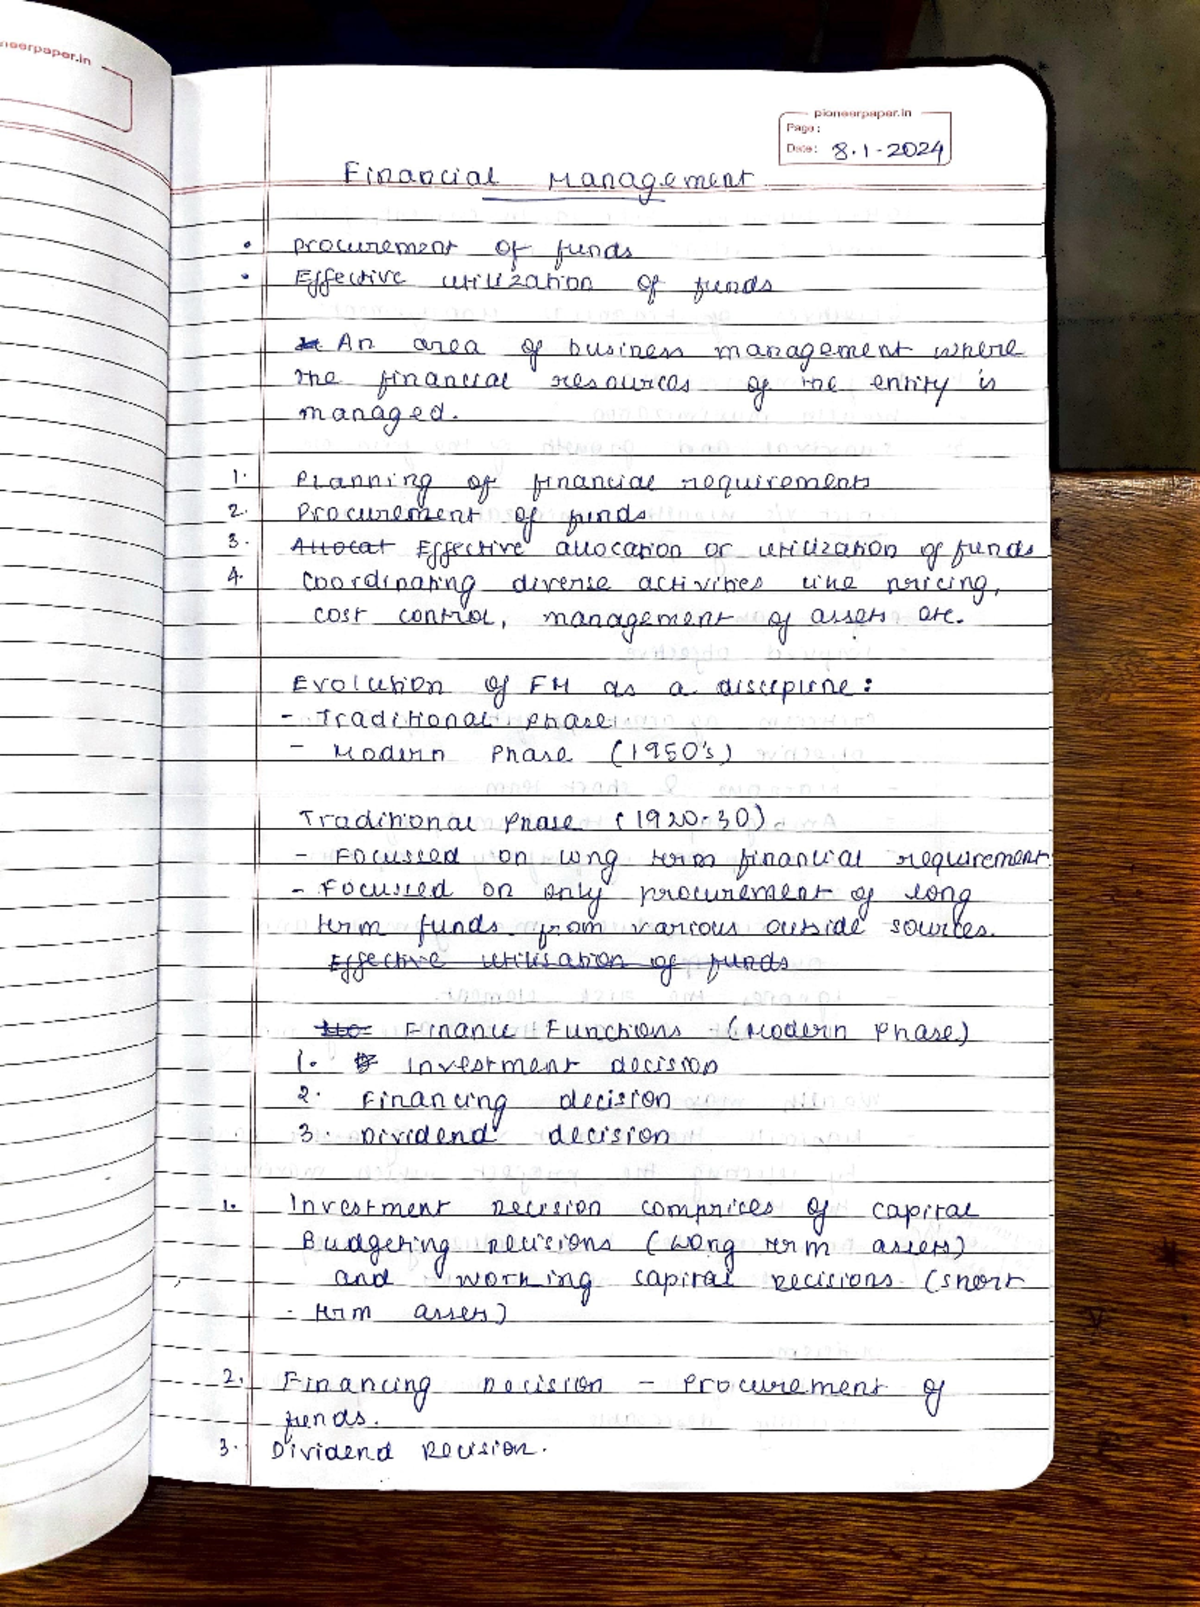 neerpaper.in
pioneerpaper.in
Page:
Date: 8.1-2024
Financial Management
• procurement of funds
• Effective utilization of funds
An area of business management where
the financial resources of the entity is
managed.
1. Planning of financial requirements
2. Procurement of funds
3. Allocat Effective allocation or utilization of funds
4. Coordinating diverse activities like pricing,
cost control, management of assets etc.
Evolution of FM as a discipline:
- Traditional Phase
- Modern Phase (1950's)
Traditional Phase (1920-30)
- Focussed on long term financial requirement
- Focussed on only procurement of long
term funds from various outside sources.
Effective utilisation of funds
Finance Functions (Modern Phase)
1. Investment decision
2. Financing decision
3. Dividend decision
1. Investment Decision comprices of capital
Budgeting Decisions (Long term assets)
and working capital Decisions (short
- term assets)
2. Financing Decision - Procurement of
funds.
3. Dividend Decision.